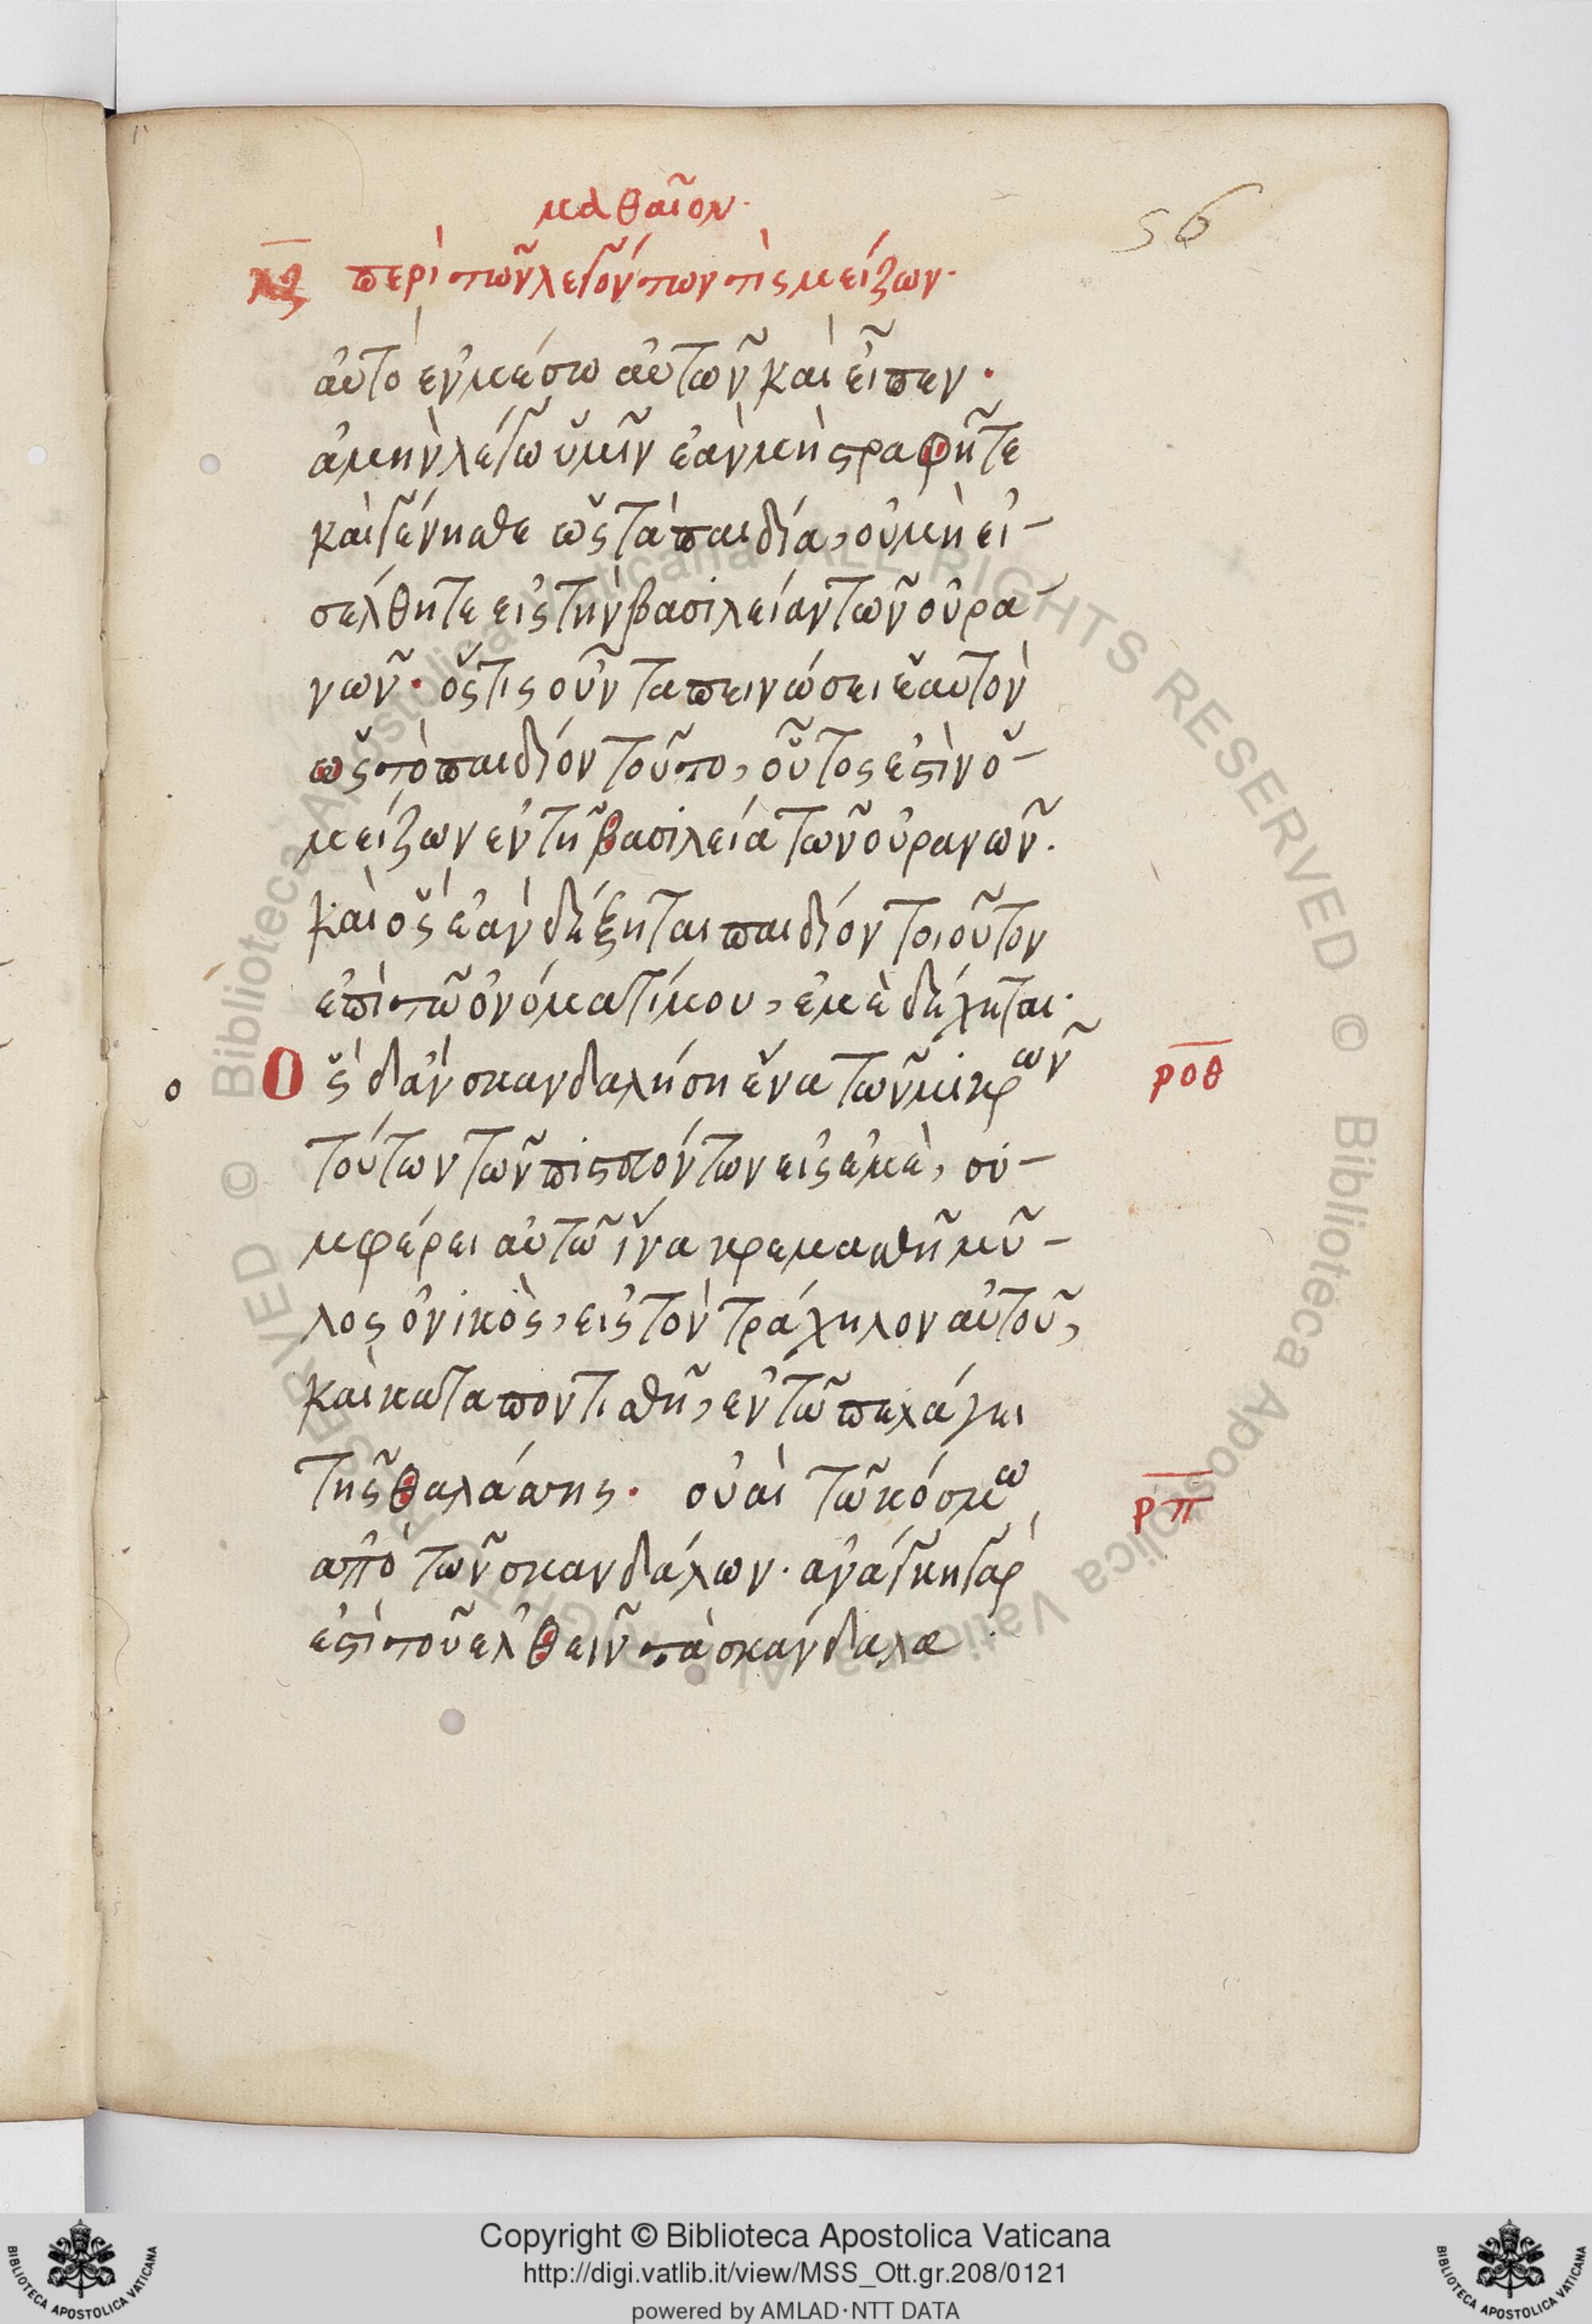 ματθαῖον·
56
κζ περὶ τῶν λεγόντων τίς μείζων·
αὐτὸ ἐν μέσω αὐτῶν καὶ εἶπεν·
ἀμὴν λέγω ὑμῖν ἐὰν μὴ στραφῆτε
καὶ γένησθε ὡς τὰ παιδία, οὐ μὴ εἰ-
σέλθητε εἰς τὴν βασιλείαν τῶν οὐρα-
νῶν· ὅστις οὖν ταπεινώσει ἑαυτὸν
ὡς τὸ παιδίον τοῦτο, οὗτος ἐστὶν ὁ-
μείζων ἐν τῆ βασιλεία τῶν οὐρανῶν.
καὶ ὃς ἐὰν δέξηται παιδίον τοιοῦτον
ἐπὶ τῶ ὀνόματί μου, ἐμὲ δέχηται·
Ὃς δ' ἂν σκανδαλήση ἕνα τῶν μικρῶν ροθ
τούτων τῶν πιστευόντων εἰς ἐμὲ, συ-
μφέρει αὐτῶ ἵνα κρεμασθῆ μῦ-
λος ὀνικὸς, εἰς τὸν τράχηλον αὐτοῦ,
καὶ καταποντισθῆ, ἐν τῶ πελάγει
τῆς θαλάσσης· οὐαὶ τῶ κόσμω ρπ
ἀπὸ τῶν σκανδάλων· ἀνάγκη γὰρ
ἐστὶ τοῦ ἐλθεῖν τὰ σκάνδαλα
Copyright © Biblioteca Apostolica Vaticana
http://digi.vatlib.it/view/MSS_Ott.gr.208/0121
powered by AMLAD·NTT DATA